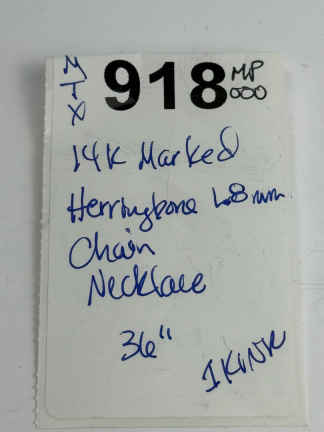 MTX 918 MP 000
14K Marked
Herringbone 1.8mm
Chain
Necklace
36"
1KINK